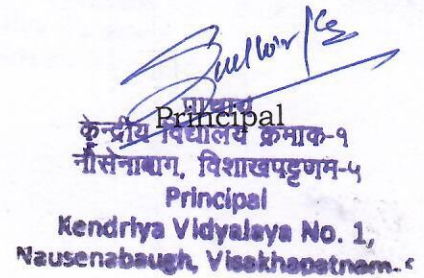 प्राचार्य
Principal
केन्द्रीय विद्यालय क्रमांक-१
नौसेनाबाग, विशाखपट्टणम-५
Principal
Kendriya Vidyalaya No. 1,
Nausenabaugh, Visakhapatnam.